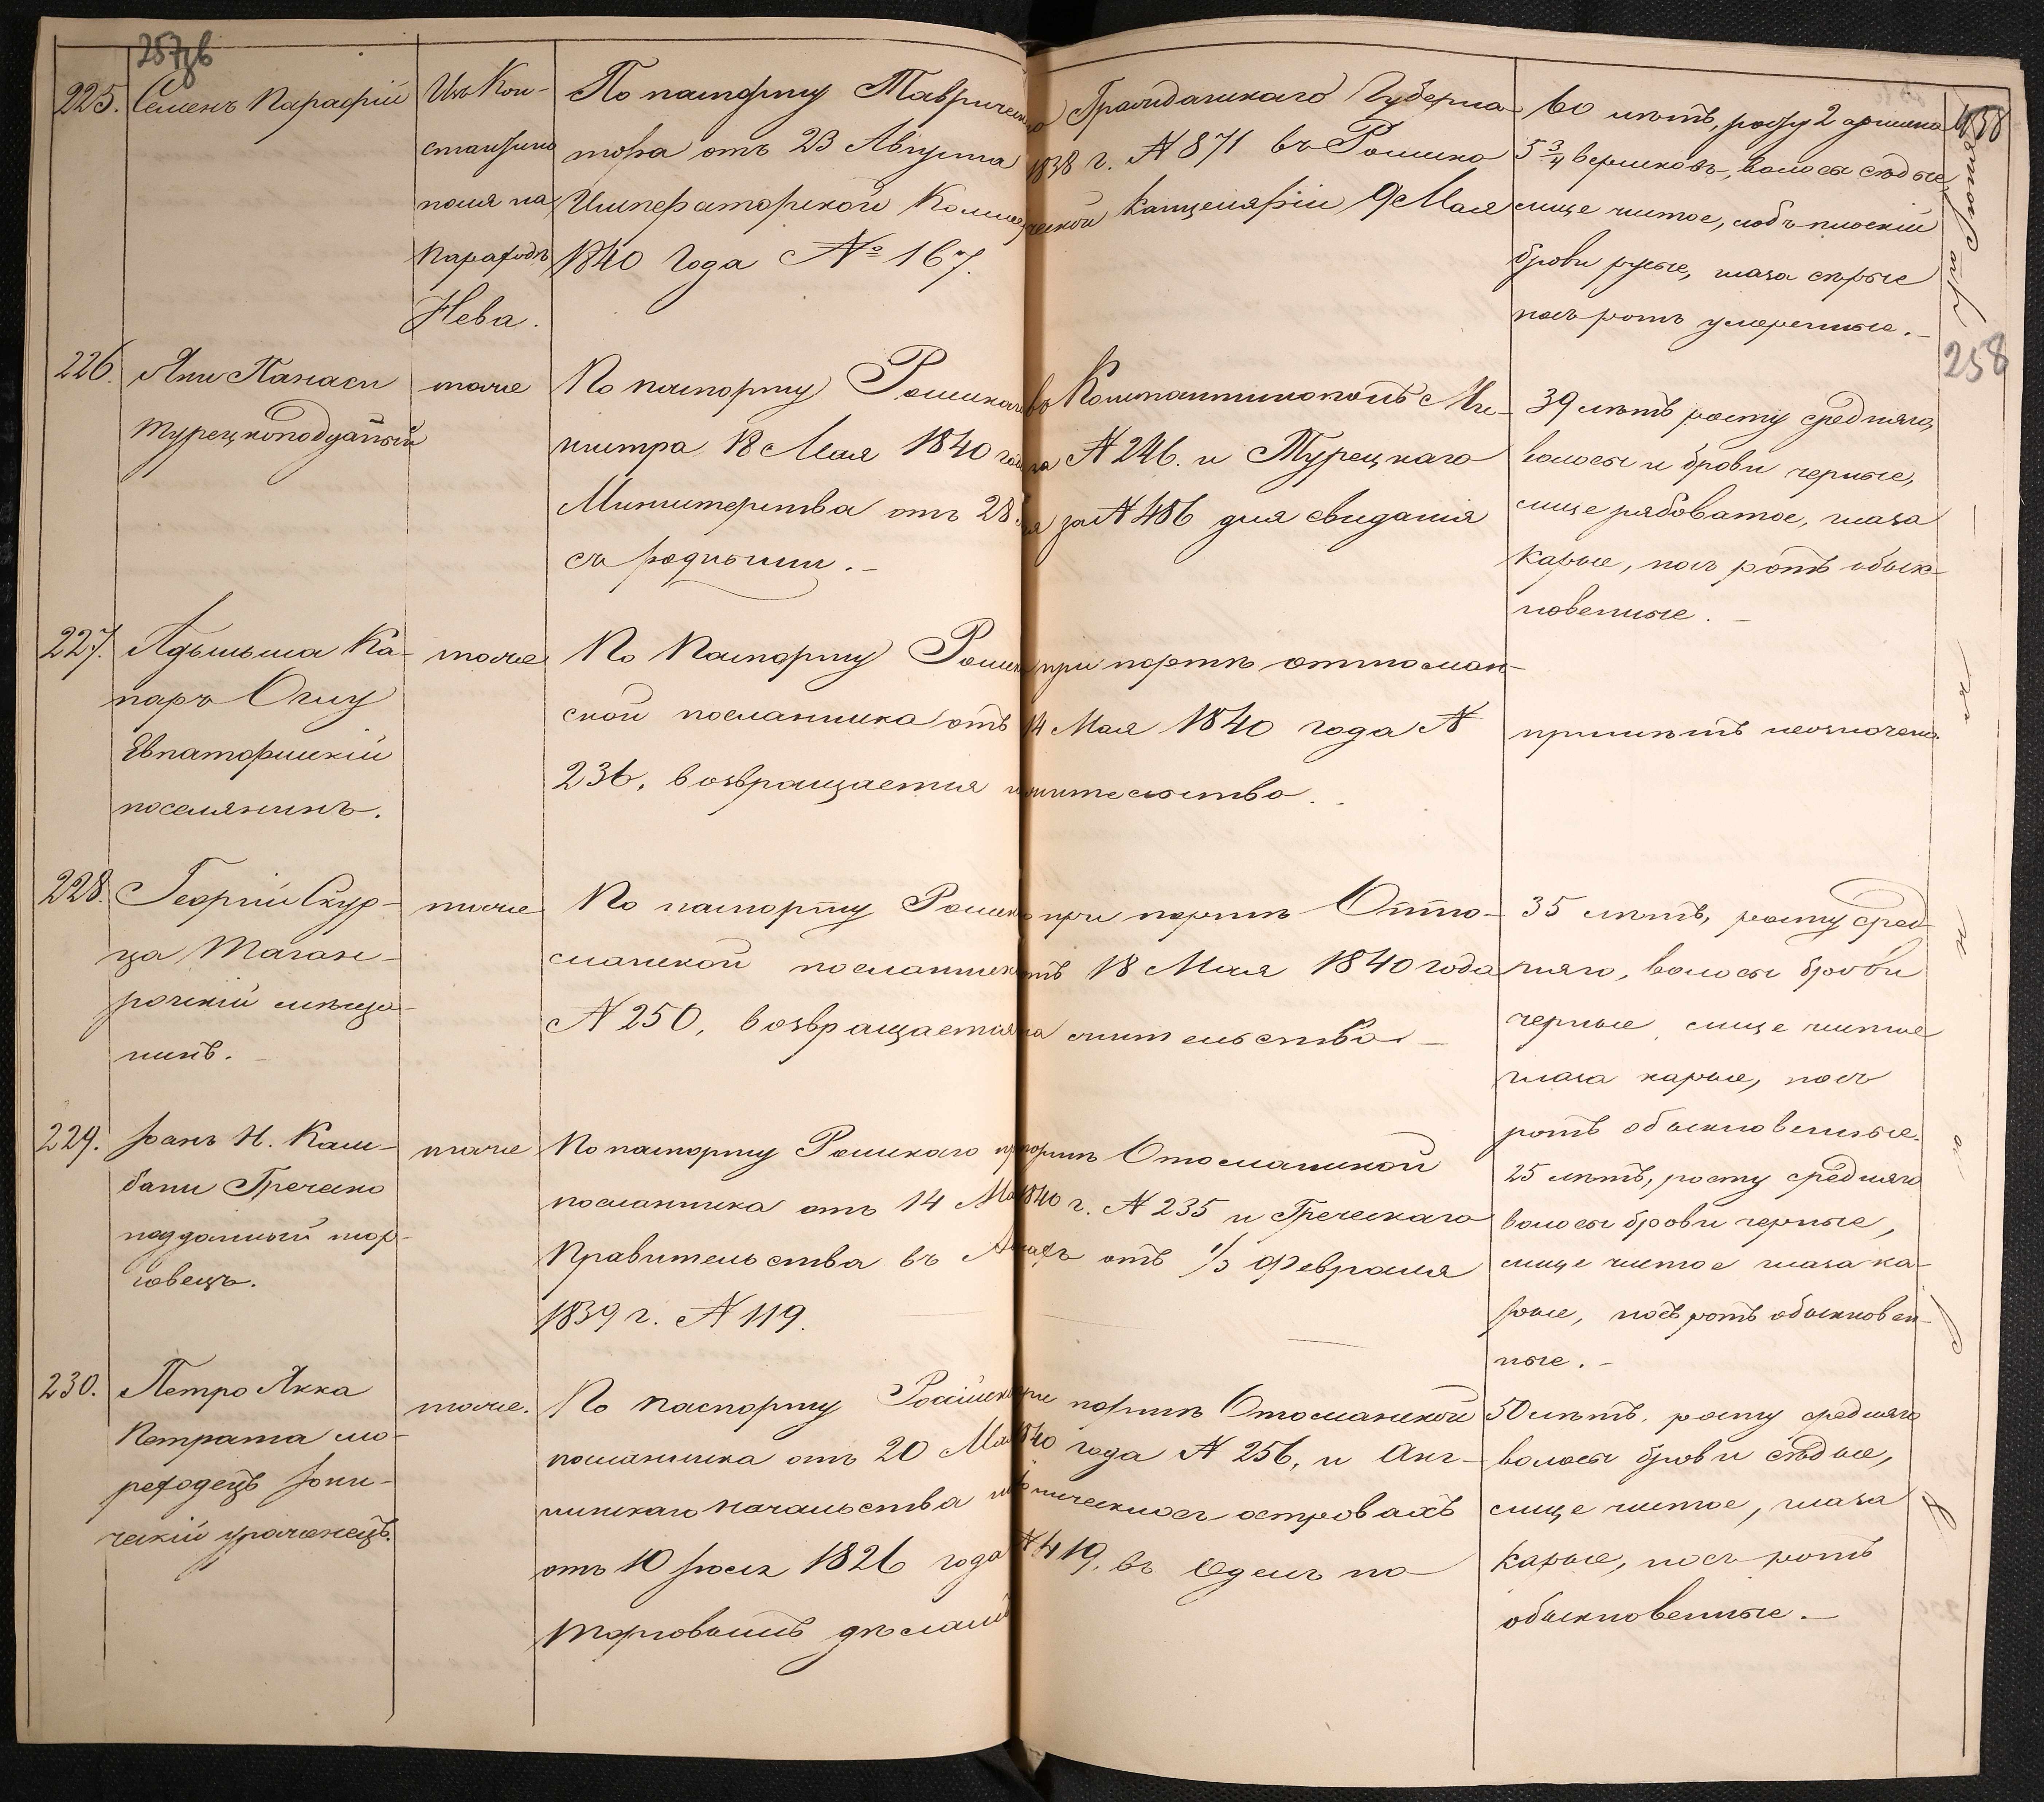 257 об
225. Семенъ Парафій
Изъ Кон-
стантино
поля на
Пароходѣ
Нева.
По паспорту Таврическаго Гражданскаго Губерна-
тора отъ 23 Августа 1838 г. № 871 въ Россійско
Императорской Коммерческой Канцеляріи 9 Мая
1840 года № 167.
60 лѣтъ, росту 2 аршина
5 3/4 вершковъ, волосы сѣдые,
лице чистое, лобъ плоскій
брови русые, глаза сѣрые
носъ ротъ умеренные.
258
226. Яни Панаси
Турецкоподданый
тоже
По паспорту Россійскаго въ Константинополѣ Ми-
нистра 18 Мая 1840 года № 246. и Турецкаго
Министерства отъ 28 за № 486 для свиданія
съ родными.
39 лѣтъ росту средняго,
волосы и брови черные,
лице рябоватое, глаза
карые, носъ ротъ обык-
новенные.
227. Ка-
паръ Оглу
Евпаторійскій
поселянинъ.
тоже
По Паспорту Россійск при портѣ оттоман-
ской посланника отъ 14 Мая 1840 года №
236, возвращается жительство.
примѣтъ неозначено
228. Георгій Скур-
ца Таган-
рогскій мѣща-
нинъ.
тоже
По паспорту Россійск при портѣ Отто-
манской посланника отъ 18 Мая 1840 года
№ 250, возвращается на жительство
35 лѣтъ, росту сред-
няго, волосы брови
черные, лице чистое
глаза карые, носъ
ротъ обыкновенные.
229. Іоанъ Н. Кам-
бани Греческо
подданный тор-
говецъ.
тоже
По паспорту Россійскаго при портѣ Отоманской
посланника отъ 14 Мая 1840 г. № 235 и Греческаго
Правительства въ отъ 1/3 Февраля
1839 г. № 119.
25 лѣтъ, росту средняго
волосы брови черные,
лице чистое глаза ка-
рые, носъ ротъ обыкновен-
ные.
230. Петро Якка
Петрата мо-
реходецъ Іони-
ческій уроженецъ.
тоже.
По паспорту Россійск при портѣ Отоманской
посланника отъ 20 Мая 1840 года № 256, и Анг-
лійскаго начальства на Іоническихъ островахъ
отъ 10 Іюля 1826 года № 419, въ Одессъ по
торговымъ дѣламъ
50 лѣтъ, росту средняго
волосы брови сѣдые,
лице чистое, глаза
карые, носъ ротъ
обыкновенные.